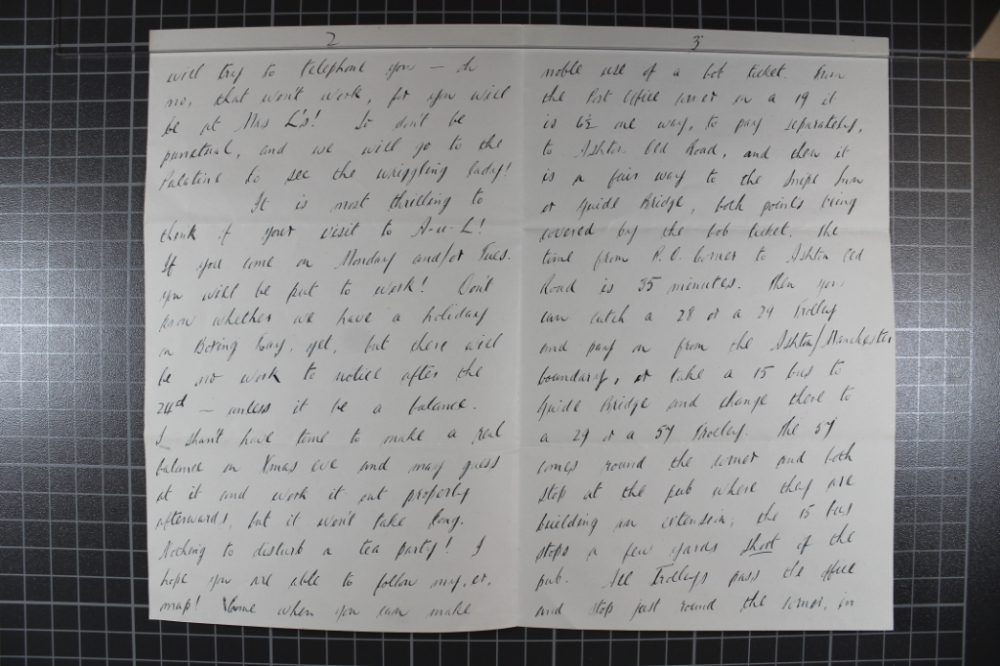 2
will try to telephone you — oh
no, that won't work, for you will
be at Mrs L's! So don't be
punctual, and we will go to the
Palatine to see the wriggling lady!
It is most thrilling to
think of your visit to A-u-L!
If you come on Monday and/or Tues.
you will be put to work! Don't
know whether we have a holiday
on Boxing Day, yet, but there will
be no work to notice after the
24th — unless it be a balance.
I shan't have time to make a real
balance on Xmas eve and may guess
at it and work it out properly
afterwards, but it won't take long.
Nothing to disturb a tea party! I
hope you are able to follow my, er,
map! Come when you can make
3
noble use of a bob ticket. From
the Post Office corner on a 19 it
is 6½ one way, to pay separately,
to Ashton Old Road, and then it
is a fair way to the Snipe Inn
or Guide Bridge, both points being
covered by the bob ticket. The
time from P.O. Corner to Ashton Old
Road is 35 minutes. Then you
can catch a 28 or a 29 Trolley
and pay on from the Ashton/Manchester
boundary, or take a 15 bus to
Guide Bridge and change there to
a 29 or a 57 Trolley. The 57
comes round the corner and both
stop at the pub where they are
building an extension; the 15 bus
stops a few yards short of the
pub. All Trolleys pass the office
and stop just round the corner, in